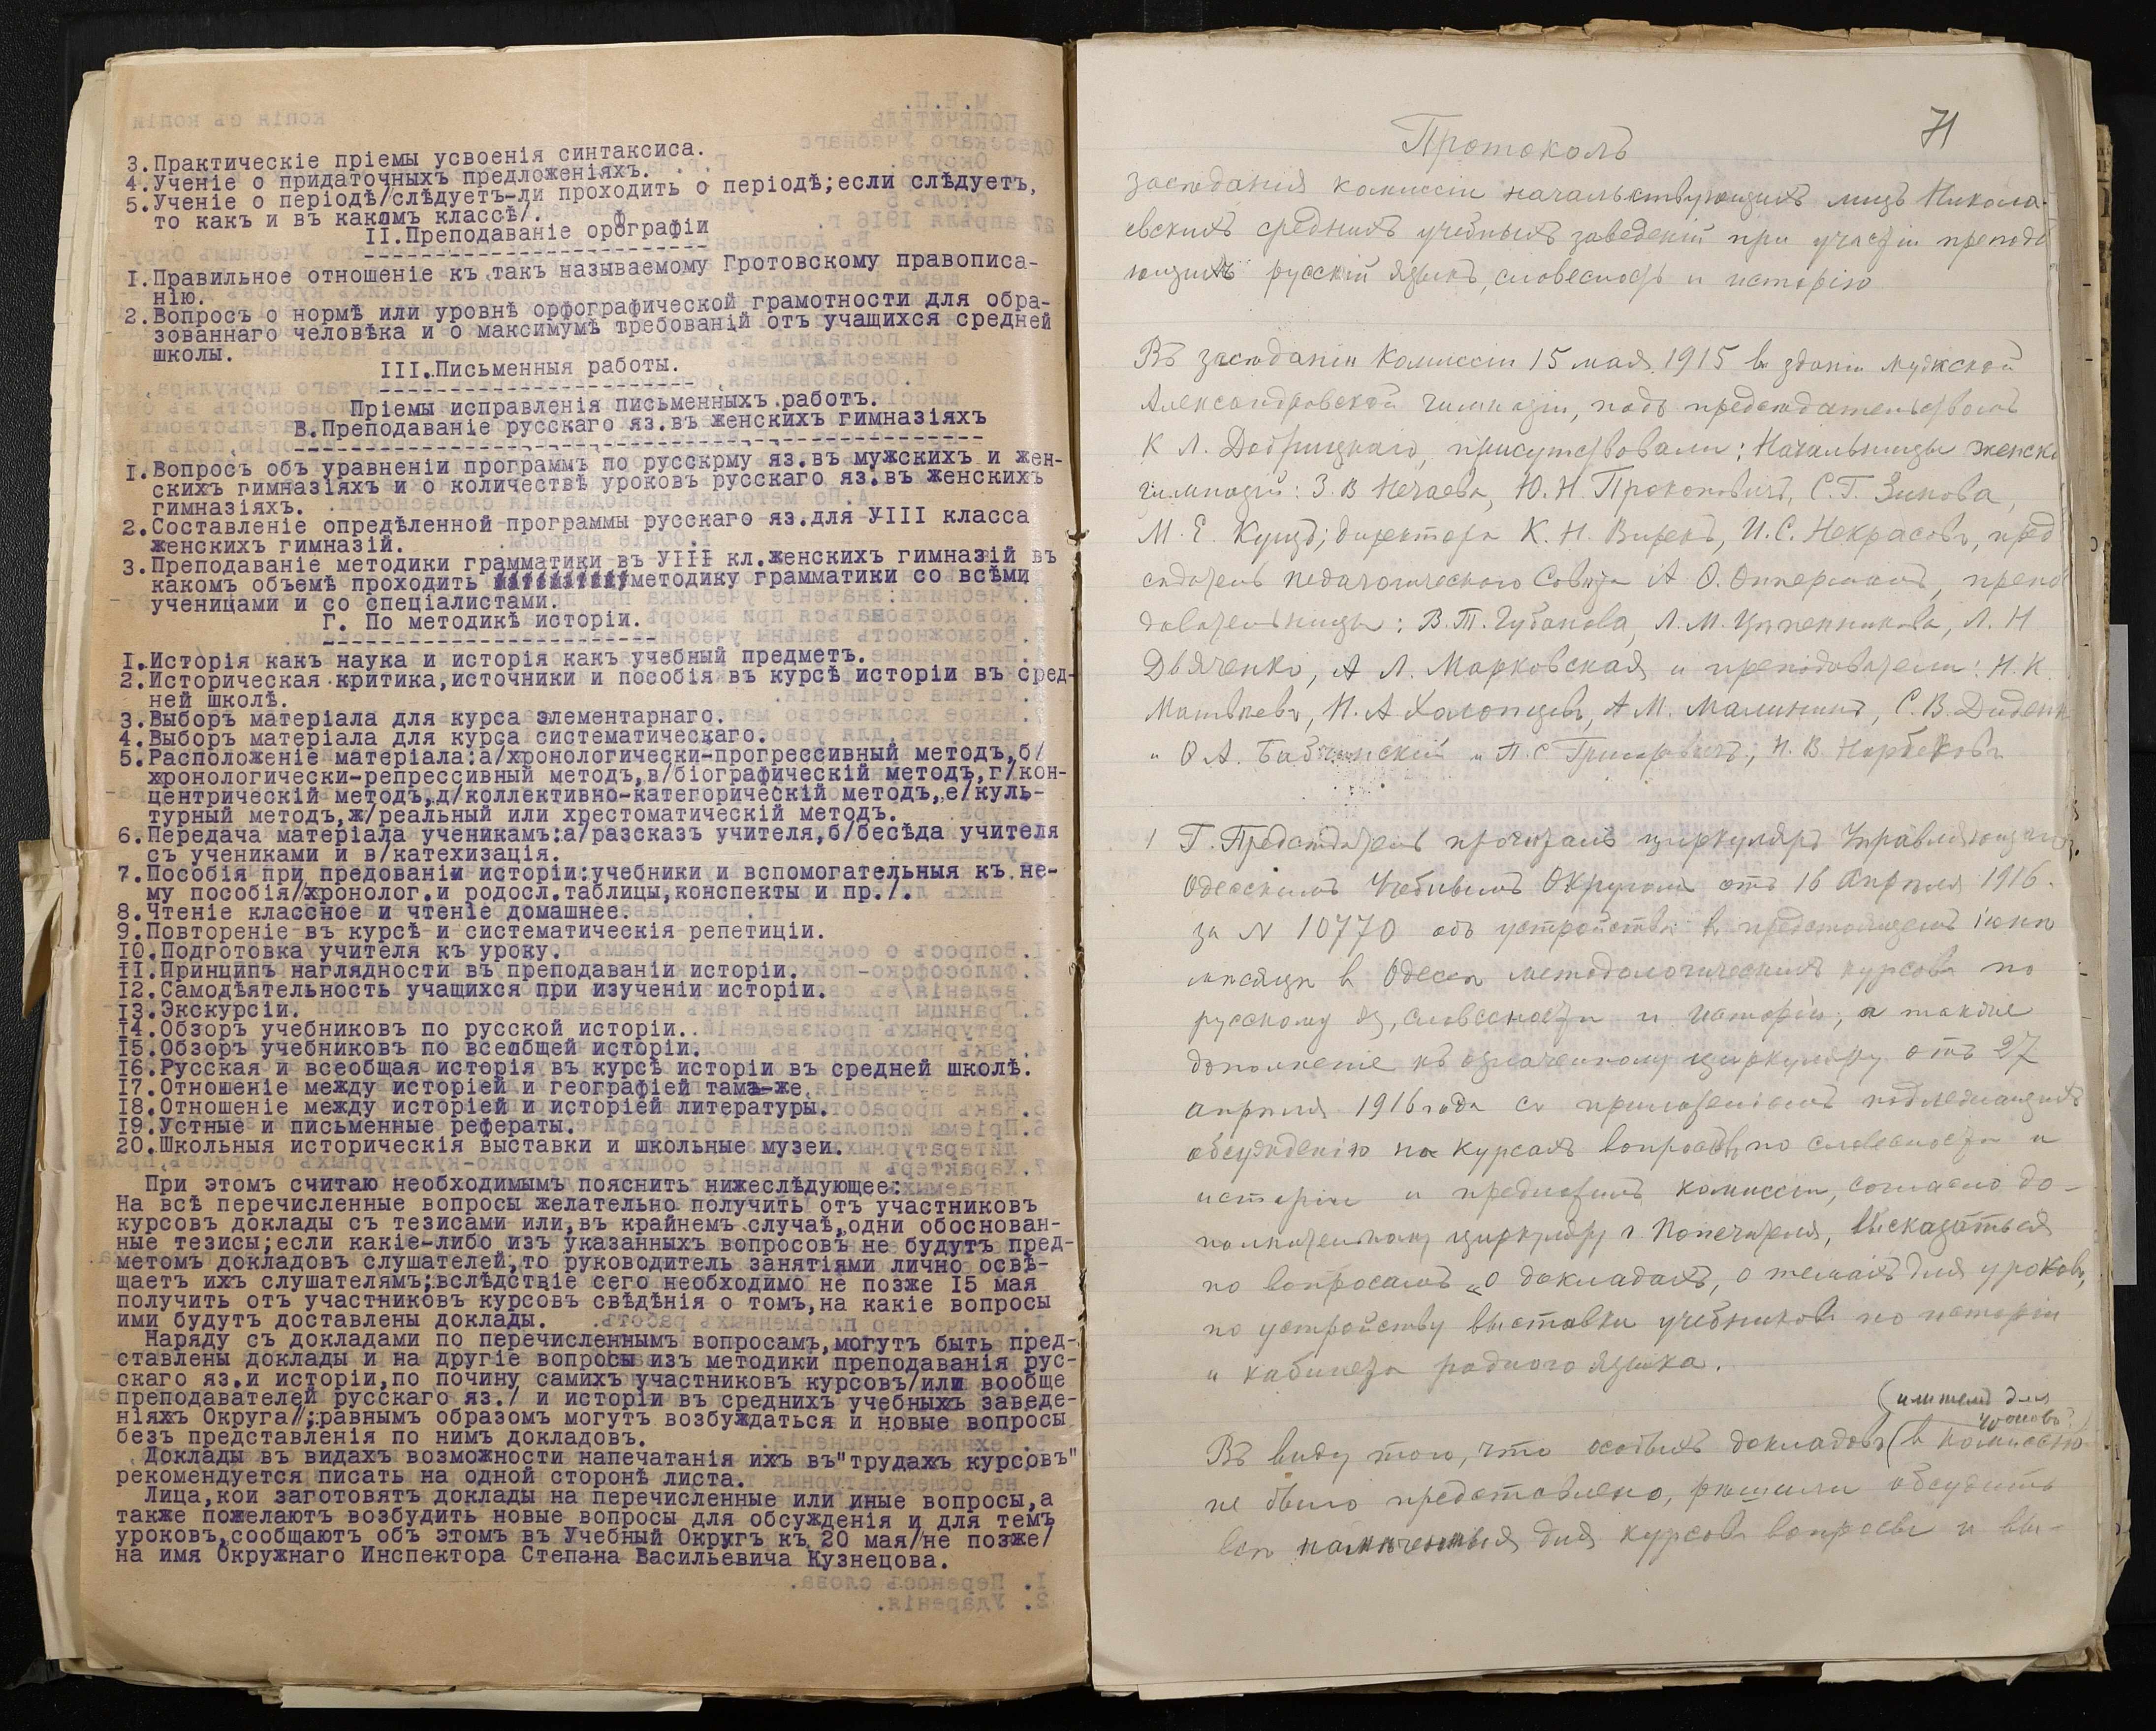 3.Практическіе пріемы усвоенія синтаксиса.
4.Ученіе о придаточныхъ предложеніяхъ.
5.Ученіе о періодѣ/слѣдуетъ-ли проходить о періодѣ;если слѣдуетъ,
то какъ и въ какомъ классѣ/.
II.Преподаваніе орфографіи
I.Правильное отношеніе къ такъ называемому Гротовскому правописа-
нію.
2.Вопросъ о нормѣ или уровнѣ орфографической грамотности для обра-
зованнаго человѣка и о максимумѣ требованій отъ учащихся средней
школы.
III.Письменныя работы.
Пріемы исправленія письменныхъ работъ.
В.Преподаваніе русскаго яз.въ женскихъ гимназіяхъ
I.Вопросъ объ уравненіи программъ по русскрму яз.въ мужскихъ и жен-
скихъ гимназіяхъ и о количествѣ уроковъ русскаго яз.въ женскихъ
гимназіяхъ.
2.Составленіе опредѣленной программы русскаго яз.для УIII класса
женскихъ гимназій.
3.Преподаваніе методики грамматики въ УIII кл.женскихъ гимназій въ
какомъ объемѣ проходить методику грамматики со всѣми
ученицами и со спеціалистами.
Г. По методикѣ исторіи.
I.Исторія какъ наука и исторія какъ учебный предметъ.
2.Историческая критика,источники и пособія въ курсѣ исторіи въ сред-
ней школѣ.
3.Выборъ матеріала для курса элементарнаго.
4.Выборъ матеріала для курса систематическаго.
5.Расположеніе матеріала:а/хронологически-прогрессивный методъ,б/
хронологически-репрессивный методъ,в/біографическій методъ,г/кон-
центрическій методъ,д/коллективно-категорическій методъ,е/куль-
турный методъ,ж/реальный или хрестоматическій методъ.
6.Передача матеріала ученикамъ:а/разсказъ учителя,б/бесѣда учителя
съ учениками и в/катехизація.
7.Пособія при предованіи исторіи:учебники и вспомогательныя къ не-
му пособія/хронолог.и родосл.таблицы,конспекты и пр./.
8.Чтеніе классное и чтеніе домашнее.
9.Повтореніе въ курсѣ и систематическія репетиціи.
10.Подготовка учителя къ уроку.
II.Принципъ наглядности въ преподаваніи исторіи.
12.Самодѣятельность учащихся при изученіи исторіи.
13.Экскурсіи.
14.Обзоръ учебниковъ по русской исторіи.
15.Обзоръ учебниковъ по всеобщей исторіи.
16.Русская и всеобщая исторія въ курсѣ исторіи въ средней школѣ.
17.Отношеніе между исторіей и географіей тамъ-же.
18.Отношеніе между исторіей и исторіей литературы.
19.Устные и письменные рефераты.
20.Школьныя историческія выставки и школьные музеи.
При этомъ считаю необходимымъ пояснить нижеслѣдующее:
На всѣ перечисленные вопросы желательно получить отъ участниковъ
курсовъ доклады съ тезисами или,въ крайнемъ случаѣ,одни обоснован-
ные тезисы;если какіе-либо изъ указанныхъ вопросовъ не будутъ пред-
метомъ докладовъ слушателей,то руководитель занятіями лично освѣ-
щаетъ ихъ слушателямъ;вслѣдствіе сего необходимо не позже 15 мая
получить отъ участниковъ курсовъ свѣдѣнія о томъ,на какіе вопросы
ими будутъ доставлены доклады.
Наряду съ докладами по перечисленнымъ вопросамъ,могутъ быть пред-
ставлены доклады и на другіе вопросы изъ методики преподаванія рус-
скаго яз.и исторіи,по почину самихъ участниковъ курсовъ/или вообще
преподавателей русскаго яз./ и исторіи въ среднихъ учебныхъ заведе-
ніяхъ Округа/;равнымъ образомъ могутъ возбуждаться и новые вопросы
безъ представленія по нимъ докладовъ.
Доклады въ видахъ возможности напечатанія ихъ въ"трудахъ курсовъ"
рекомендуется писать на одной сторонѣ листа.
Лица,кои заготовятъ доклады на перечисленные или иные вопросы,а
также пожелаютъ возбудить новые вопросы для обсужденія и для темъ
уроковъ,сообщаютъ объ этомъ въ Учебный Округъ къ 20 мая/не позже/
на имя Окружнаго Инспектора Степана Васильевича Кузнецова.
71
Протоколъ
засѣданія комиссіи начальствующихъ лицъ Никола-
евскихъ среднихъ учебныхъ заведеній при участіи препода
ющихъ русскій языкъ, словесность и исторію
Въ засѣданіи Комиссіи 15 мая 1915 въ зданіи мужской
Александровской гимназіи, подъ предсѣдательствомъ
К Л. Добрицкаго, присутствовали: Начальницы женск
гимназій: З. В Нечаева, Ю. Н. Прокоповичъ, С. Г. Зикова,
М. Е. Кунцъ; директора К. Н. Вирекъ, И. С. Некрасовъ, пред
сѣдатель педагогическаго Совѣта А О. Опперманъ, препо
давательницы: В. Т. Губанова, Л. М. Л. Н
Дьяченко, А Л. Марковская и преподаватели: Н. К.
Матвѣевъ, Н. А Холопцевъ, А М. Малининъ, С. В. Диденк
" О А. Бабчинскій " П. С Григоровичъ, Н. В. Нарбековъ
1 Г. Предсѣдатель прочиталъ циркуляръ Управляющаго
Одесскимъ Учебнымъ Округомъ отъ 16 Апрѣля 1916.
за N 10770 объ устройствѣ въ предстоящемъ іюнѣ
мѣсяцѣ въ Одессѣ методологическихъ курсовъ по
русскому яз, словесности и исторіи, а также
дополненіе къ означенному циркуляру отъ 27
апрѣля 1916 года съ приложеніемъ подлежащихъ
обсужденію на курсахъ вопросовъ по словесности и
исторіи и предложилъ комиссіи, согласно до-
полнительному циркуляру г Попечителя, высказаться
по вопросамъ „о докладахъ, о темахъ для уроковъ,
по устройству выставки учебниковъ по исторіи
и кабинета родного языка.
(или темъ для
уроковъ?)
Въ виду того, что особыхъ докладовъ (въ комиссію
не было представлено, рѣшили обсудить
всѣ намѣченныя для курсовъ вопросы и вы-